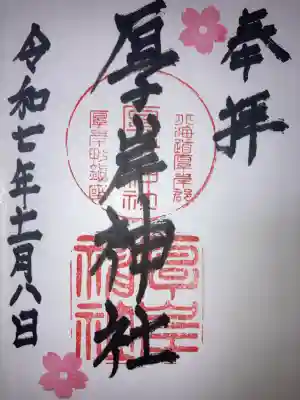 奉拝
北海道厚岸郡
厚岸神社
厚岸町鎮座
厚岸神社
令和七年十一月八日